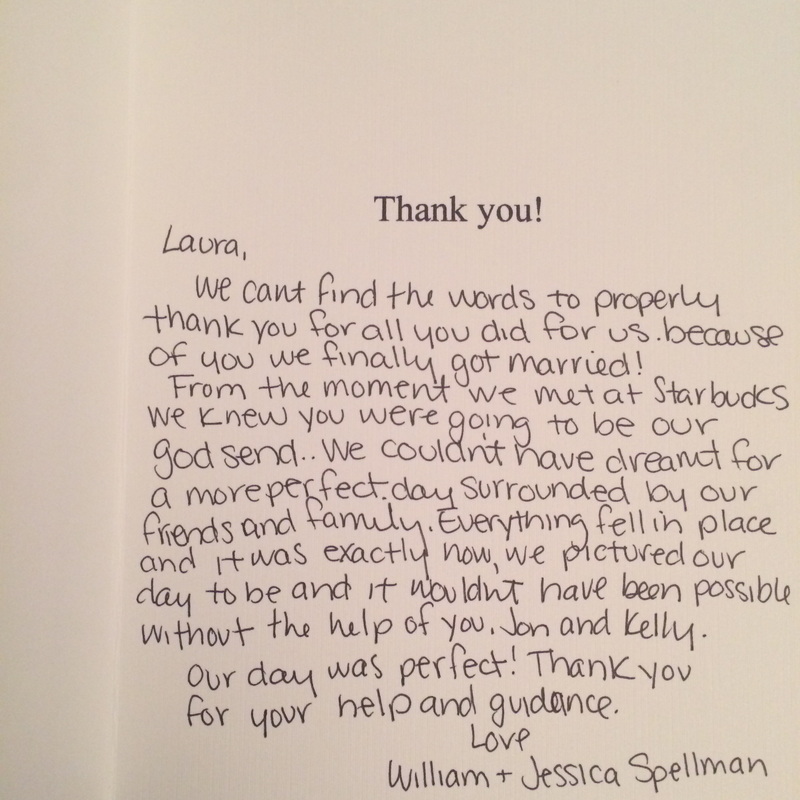 Thank you!
Laura,
We cant find the words to properly
thank you for all you did for us. because
of you we finally got married!
From the moment we met at Starbucks
we knew you were going to be our
god send.. We couldn't have dreamt for
a more perfect day surrounded by our
friends and family. Everything fell in place
and it was exactly how we pictured our
day to be and it wouldnt have been possible
without the help of you, Jon and Kelly.
Our day was perfect! Thank you
for your help and guidance.
Love
William + Jessica Spellman